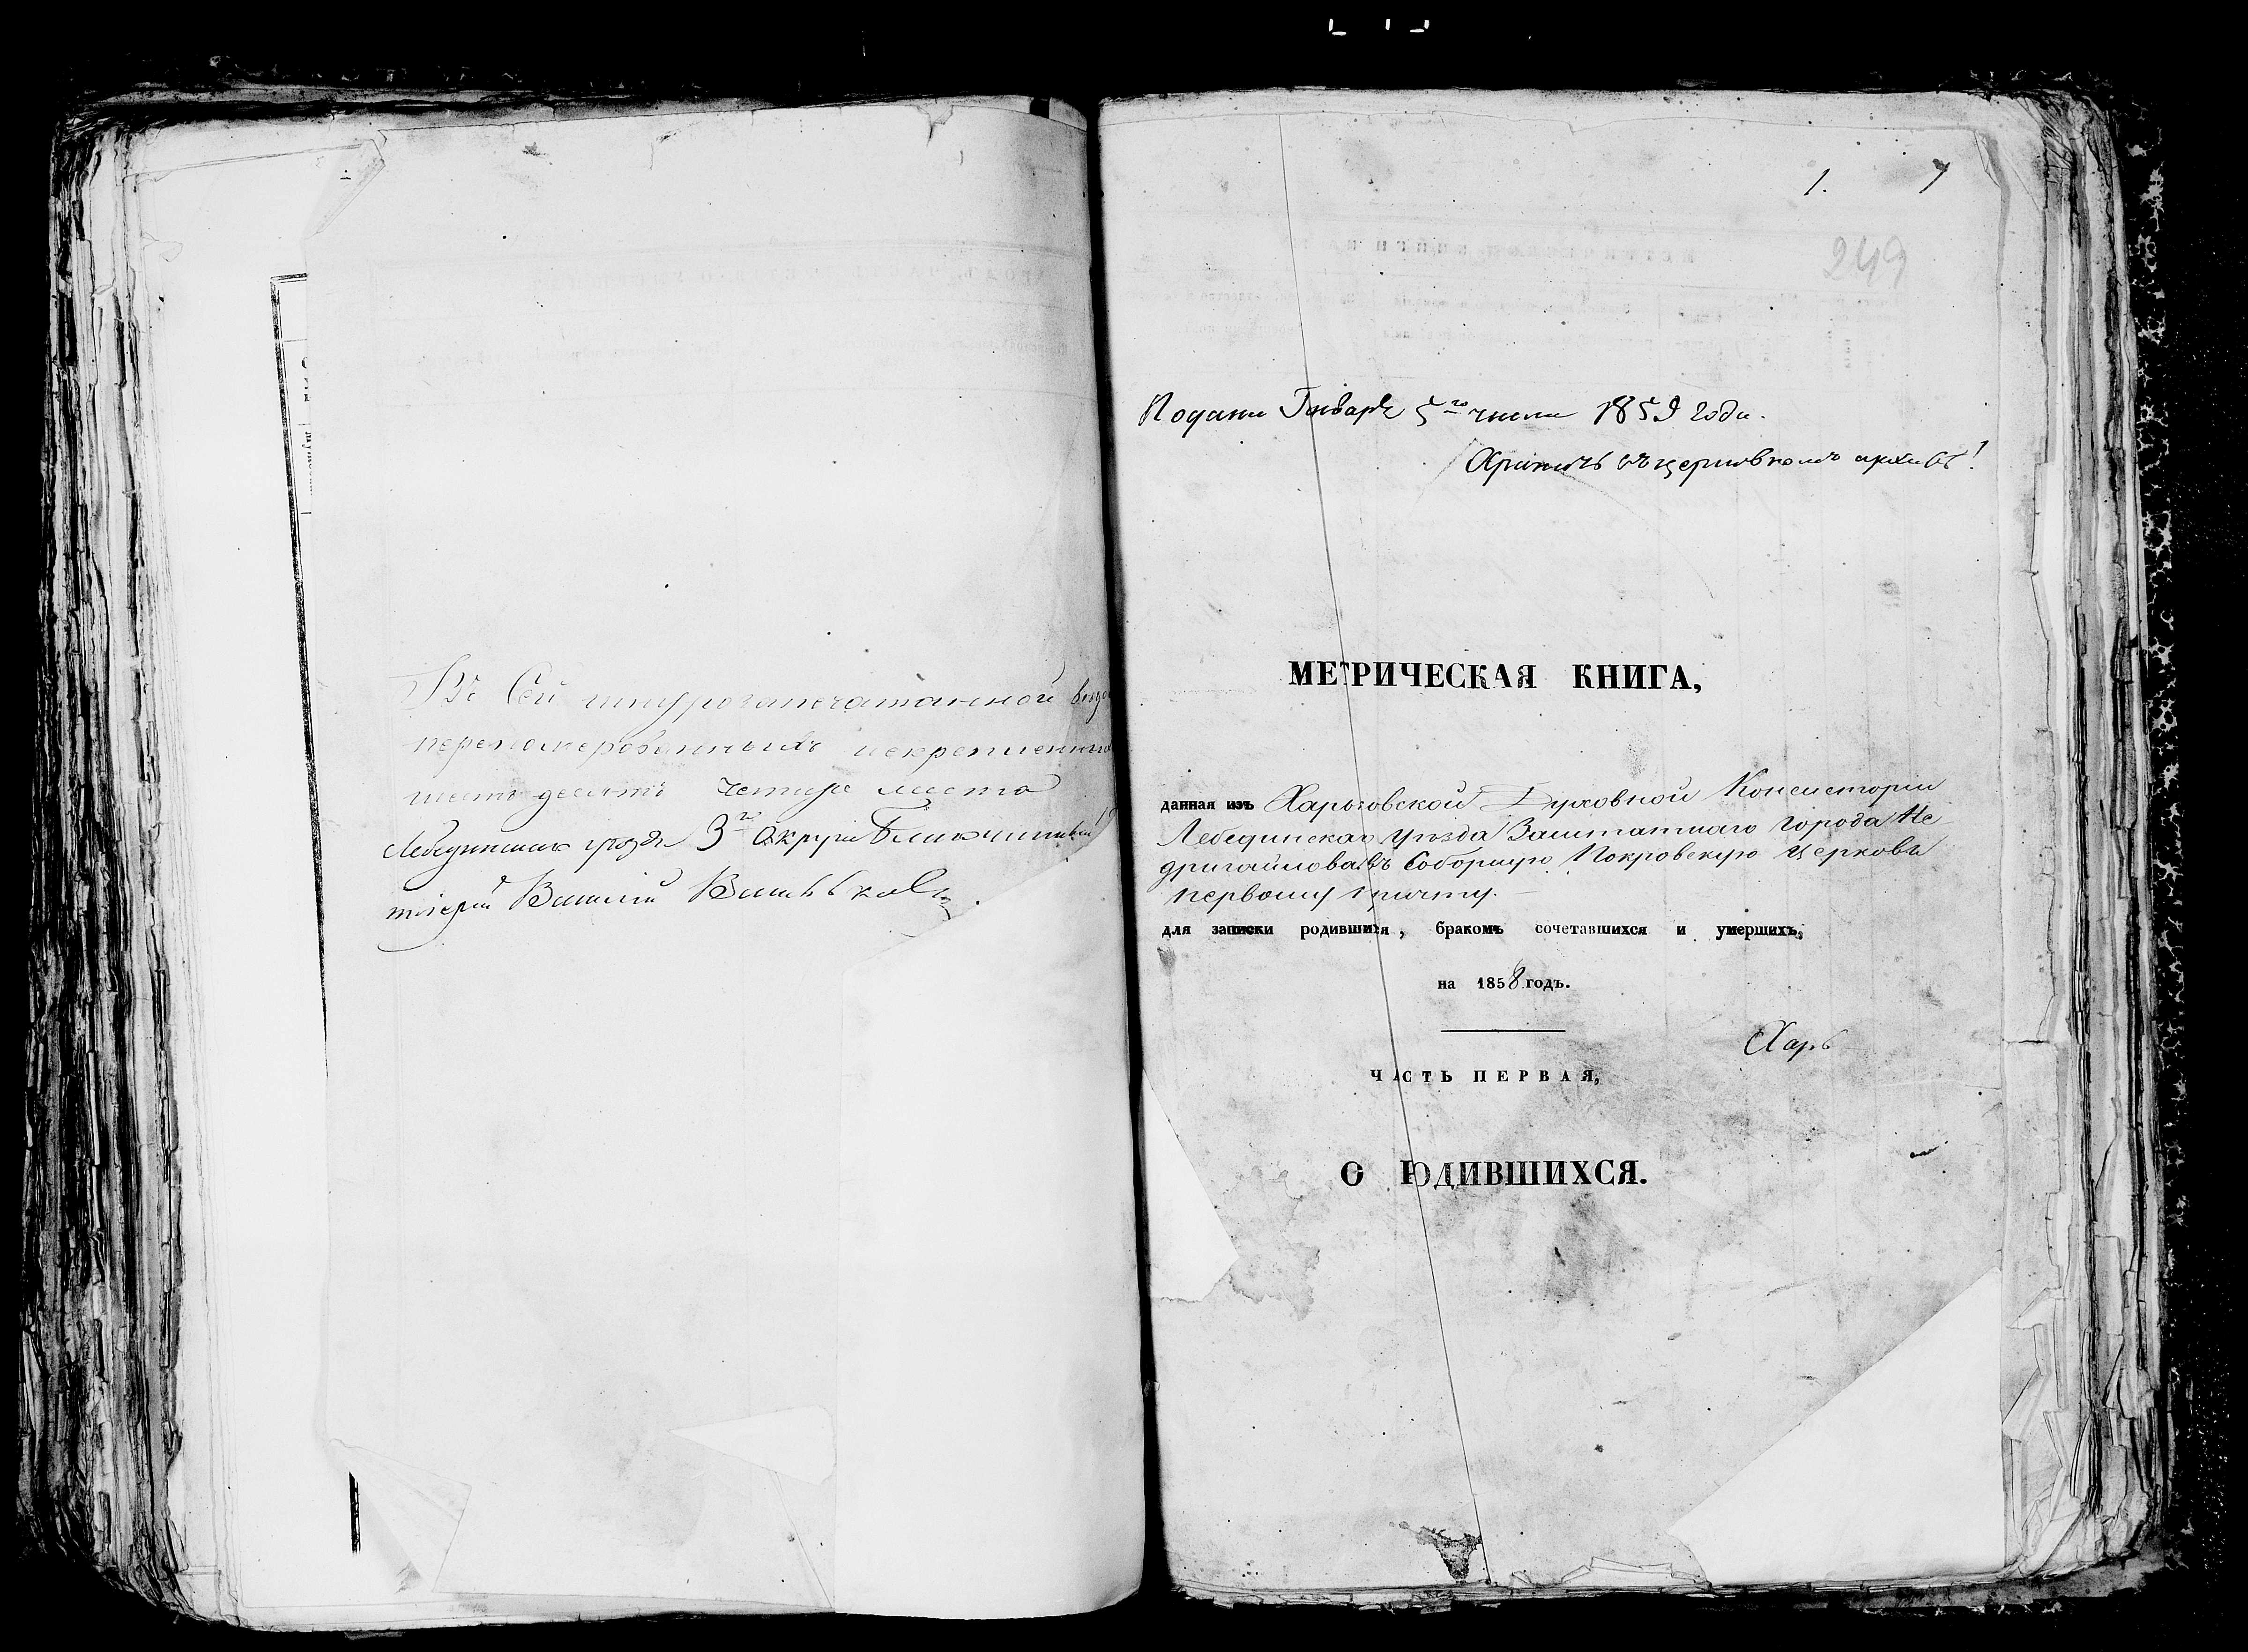 Въ Сей шнурозапечатанной
перенумерованныхъ искрепленны
шестьдесятъ четыре листа
Лебединскаго уѣзда 3го Округа Благочинный
Василий
1.
249
Подана Генваря 5го числа 1859 года.
Хранить въ церковномъ архивѣ!
МЕТРИЧЕСКАЯ КНИГА,
данная изъ Харьковской Духовной Консисторіи
Лебединскаго уѣзда Заштатнаго города Не-
дригайлова въ Соборную Покровскую Церковь
первому причту.
для записки родившихся, бракомъ сочетавшихся и умершихъ,
на 1858 годъ.
Харь
ЧАСТЬ ПЕРВАЯ,
О РОДИВШИХСЯ.